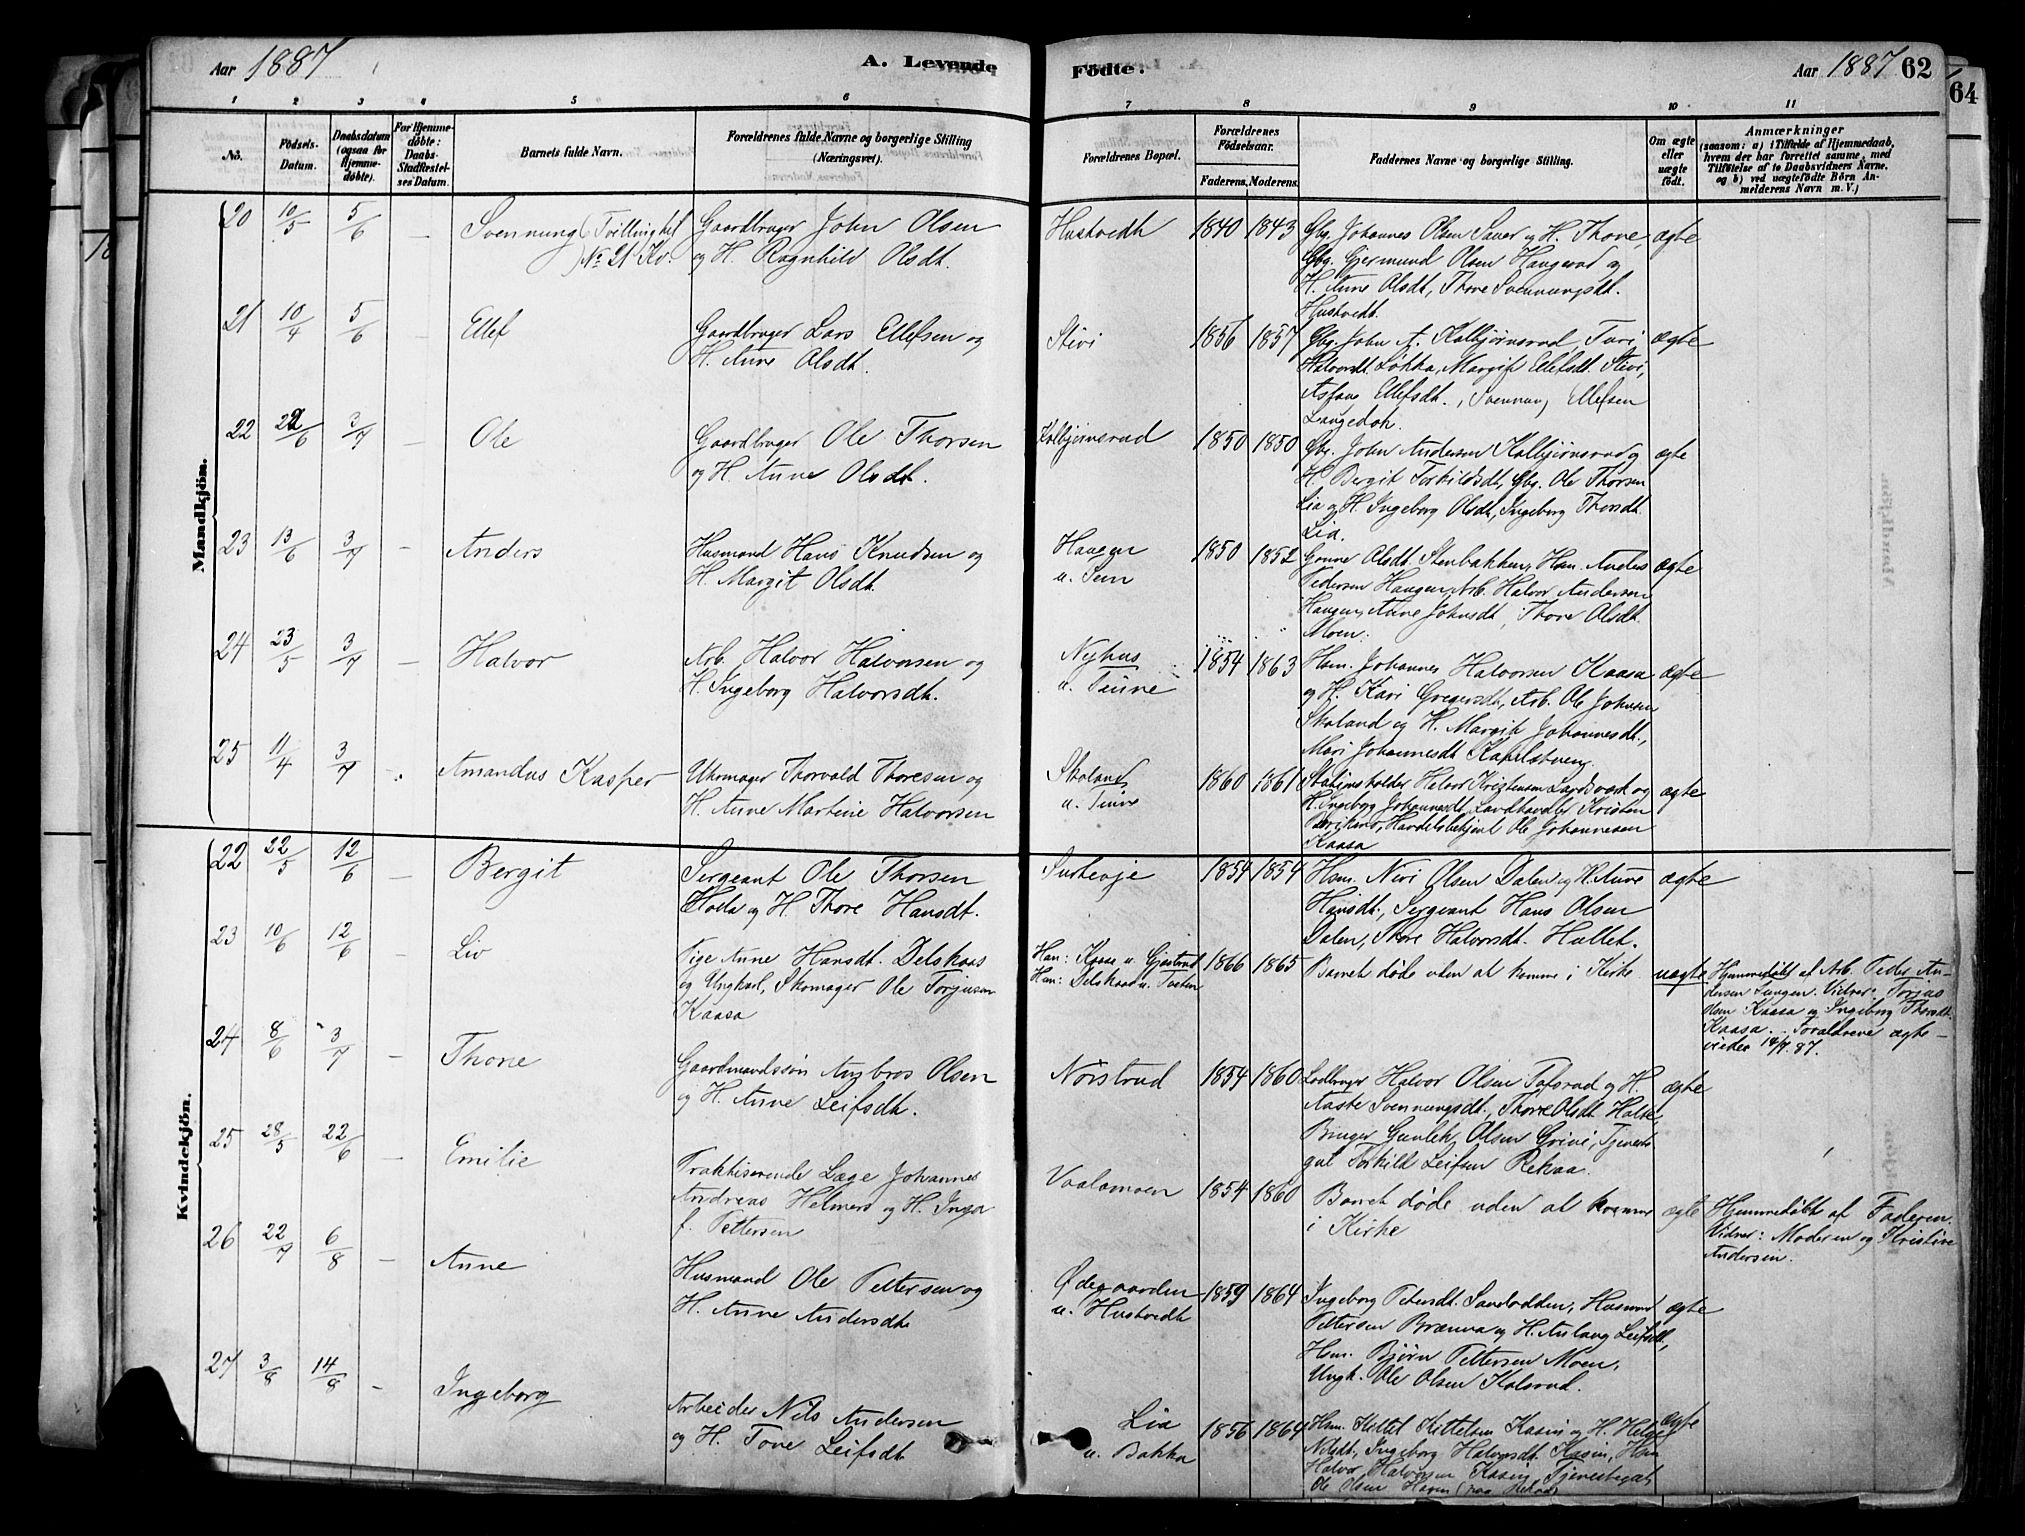 Aar 1887 A. Levende Fødte. Aar 1887 62
64
1 2 3 4 5 6 7 8 9 10 11
No. Födsels-Datum. Daabsdatum (ogsaa for Hjemmedöbte). For Hjemmedöbte: Daabs-Stadfæstelses Datum. Barnets fulde Navn. Forældrenes fulde Navne og borgerlige Stilling (Næringsvei). Forældrenes Bopæl. Forældrenes Födselsaar. Faderens. Moderens. Faddernes Navne og borgerlige Stilling. Om ægte eller uægte födt. Anmærkninger (saasom: a) i Tilfælde af Hjemmedaab, hvem der har forrettet samme, med Tilföielse af to Daabsvidners Navne, og b) ved uægtefödte Börn Anmelderens Navn m. V.)
Mandkjön.
20 10/5 5/6 – Svennung (Tvilling til No 21 Kv.) Gaardbruger John Olsen og H. Ragnhild Olsdt. Hustvedt 1840 1843 Gbg. Johannes Olsen Sauer og H. Thore, Gbg. Gjermund Olsen Haugerud og H. Anne Olsdt, Thore Svennungsdt. Hustvedt. ægte
21 10/4 5/6 – Ellef Gaardbruger Lars Ellefsen og H. Anne Olsdt. Stivi 1856 1857 Gbg. John A. Kolbjørnsrud, Turi Halvorsdt. Løkka, Margit Ellefsdt. Stivi, Aslaug Ellefsdt., Svennung Ellefsen Langedok. ægte
22 22/6 3/7 – Ole Gaardbruger Ole Thorsen og H. Anne Olsdt. Kolbjørnsrud 1850 1850 Gbg. John Andersen Kolbjørnsrud og H. Bergit Torkildsdt, Gbg. Ole Thorsen Lia og H. Ingeborg Olsdt, Ingeborg Thorsdt. Lia. ægte
23 13/6 3/7 – Anders Husmand Hans Knudsen og H. Margit Olsdt. Haugen u. Sem 1850 1852 Gunne Olsdt. Stenbakken, Hsm. Anders Pedersen Haugen, Arb. Halvor Andersen Haugen, Anne Johnsdt, Thore Olsdt. Moen. ægte
24 23/5 3/7 – Halvor Arb. Halvor Halvorsen og H. Ingeborg Halvorsdt. Nyhus u. Tinne 1854 1863 Hsm. Johannes Halvorsen Kaasa og H. Kari Gregersdt, Arb. Ole Johnsen Skoland og H. Margit Johannesdt., Mari Johannesdt. Kapelsberg. ægte
25 11/4 3/7 Amandus Kasper Uhrmager Thorvald Thoresen og H. Anne Martine Halvorsen Skoland u. Tinne 1860 1861 Halvor Kristensen og H. Ingeborg Johannesdt. Landhandler Kristen Handelsbetjent Ole Johannesen Kaasa ægte
Kvindekjön.
22 22/5 12/6 Bergit Sergeant Ole Thorsen Holta og H. Thore Hansdt. Surtevje 1854 1854 Hsm. Niri Olsen Dalen og H. Anne Hansdt., Sergeant Hans Olsen Dalen, Thore Halvorsdt. Hullet. ægte
23 10/6 12/6 Liv Pige Anne Hansdt. Delskaas og Ungkarl, Skomager Ole Torjusen Kaasa Han: Kaasa u. Gjøstrud Hun: Delskaas u. Tveten 1866 1865 Barnet døde uden at komme i Kirke. uægte Hjemmedøbt af Arb. Peder Andersen Langen. Vidner: Torjus Olsen Kaasa og Ingeborg Thorsdt. Kaasa. Forældrene ægteviedes 14/9. 87.
24 8/6 3/7 – Thone Gaardmandssøn Ambros Olsen og H. Anne Leifsdt. Nørstrud 1854 1860 Halvor Olsen Tofsrud og H. Aaste Svennungsdt., Thore Olsdt. Bruger Gunlek Olsen Grivi, Tjenestegut Torkild Leifsen Rekaa. ægte
25 28/5 22/6 – Emilie Praktiserende Læge Johannes Andreas Helmers og H. Inga f. Pettersen Vaalamoen 1854 1860 Barnet døde uden at komme i Kirke ægte Hjemmedøbt af Faderen. Vidner: Moderen og Kristine Andersen.
26 22/7 6/8 – Anne Husmand Ole Pettersen og H. Anne Andersdt. Ødegaarden u. Hustvedt 1859 1864 Ingeborg Petersdt. Husmd. Pettersen Brænna og H. Aslaug Leifsdt, Hsm. Bjørn Pettersen Moen, Ungk. Ole Olsen Kolsrud. ægte
27 3/8 14/8 – Ingeborg Arbeider Nils Andersen og H. Tone Leifsdt Lia u. Bakka 1856 1864 Hsm. Kittel Kittelsen Kasin og H. Helge Nilsdt, Ingeborg Halvorsdt. Kasin, Halvor Halvorsen Kasin, Tjenestegut Ole Olsen ægte